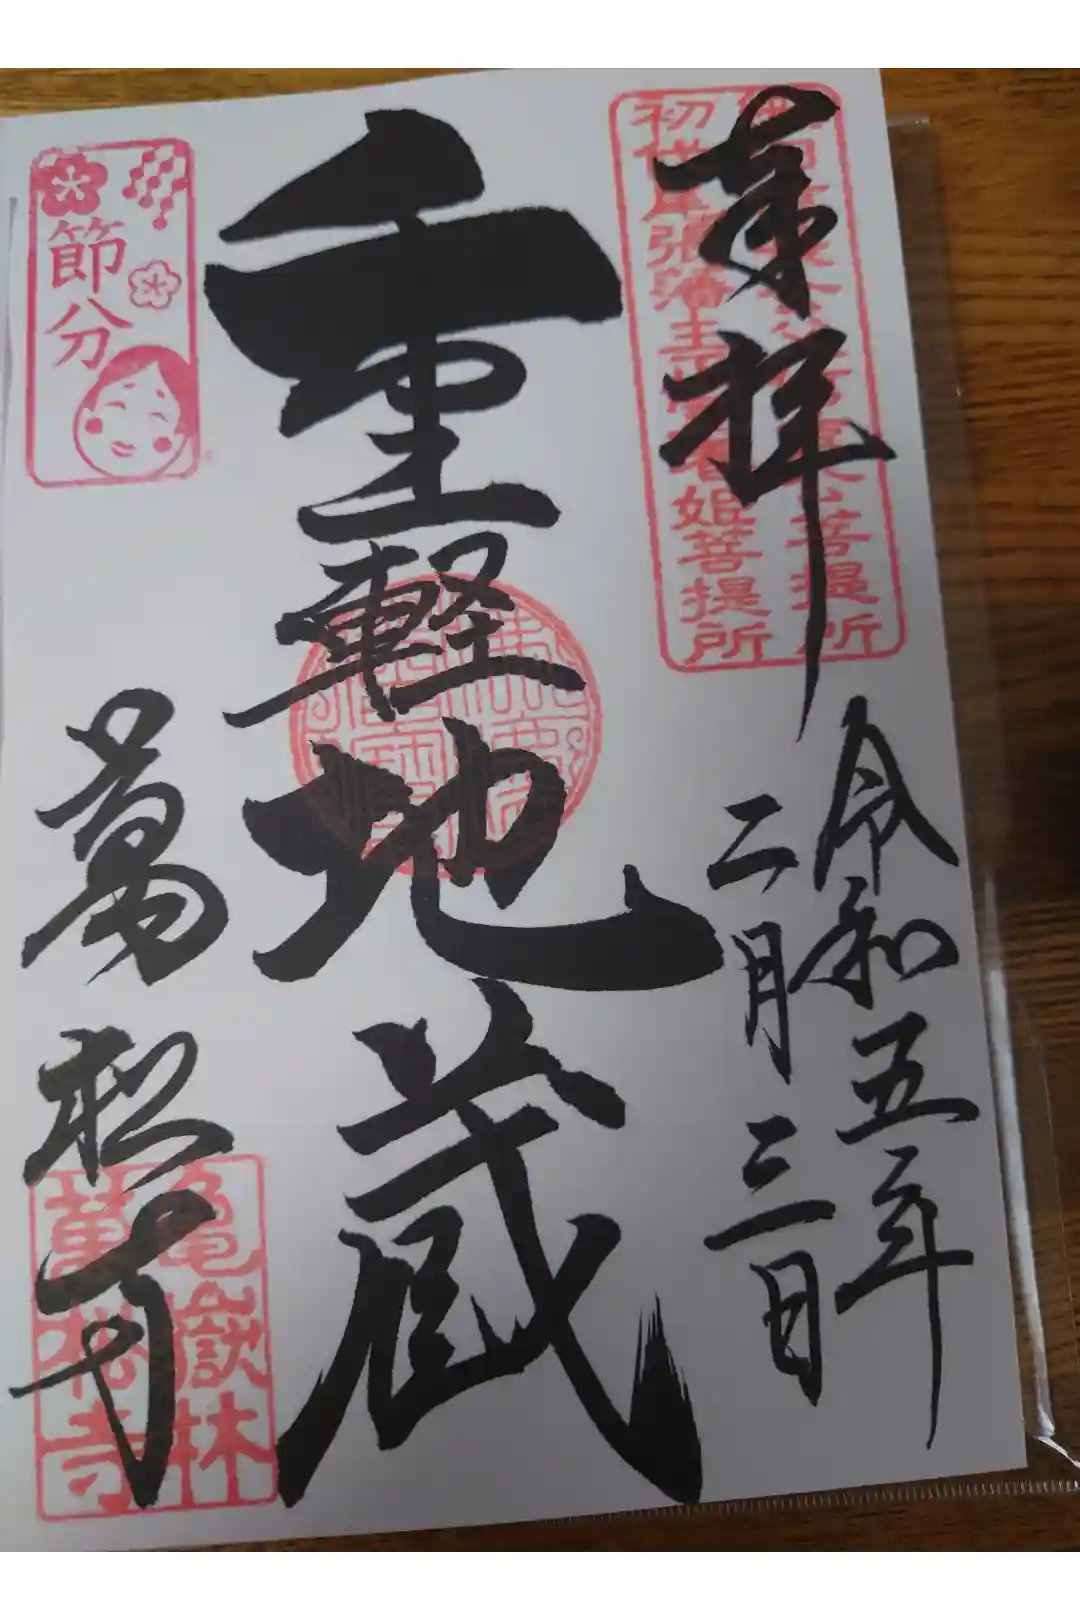 奉拝
令和五年
二月三日
初代尾張藩主正室春姫菩提所
重軽地蔵
節分
萬松寺
亀嶽林
萬松寺